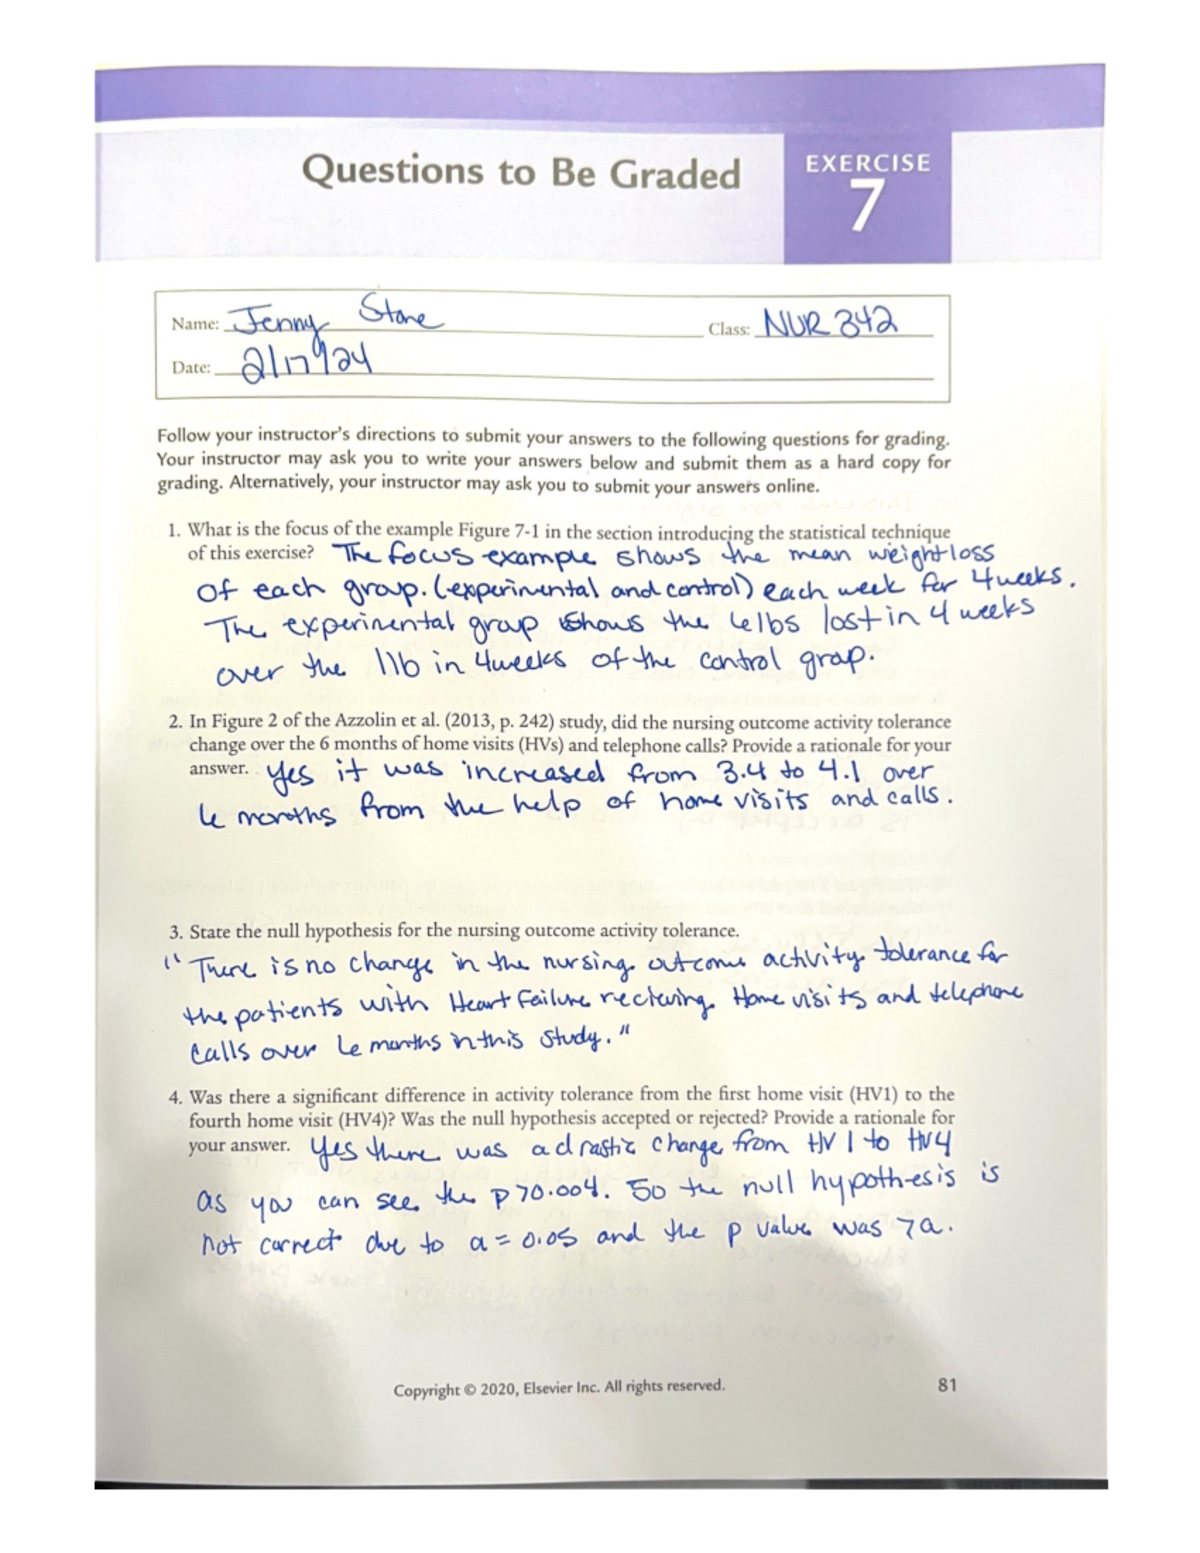 Questions to Be Graded
EXERCISE
7
Name: Jenny Stone
Class: NUR 342
Date: 2/17/24
Follow your instructor's directions to submit your answers to the following questions for grading.
Your instructor may ask you to write your answers below and submit them as a hard copy for
grading. Alternatively, your instructor may ask you to submit your answers online.
1. What is the focus of the example Figure 7-1 in the section introducing the statistical technique
of this exercise? The focus example shows the mean weightloss
of each group. (experimental and control) each week for 4 weeks.
The experimental group shows the 6lbs lost in 4 weeks
over the 1lb in 4weeks of the control group.
2. In Figure 2 of the Azzolin et al. (2013, p. 242) study, did the nursing outcome activity tolerance
change over the 6 months of home visits (HVs) and telephone calls? Provide a rationale for your
answer. Yes it was increased from 3.4 to 4.1 over
6 months from the help of home visits and calls.
3. State the null hypothesis for the nursing outcome activity tolerance.
"There is no change in the nursing outcome activity tolerance for
the patients with Heart Failure recieving Home visits and telephone
calls over 6 months in this study."
4. Was there a significant difference in activity tolerance from the first home visit (HV1) to the
fourth home visit (HV4)? Was the null hypothesis accepted or rejected? Provide a rationale for
your answer. Yes there was a drastic change from HV 1 to HV4
as you can see the p>0.004. So the null hypothesis is
not correct due to a = 0.05 and the p value was >a.
Copyright © 2020, Elsevier Inc. All rights reserved.
81